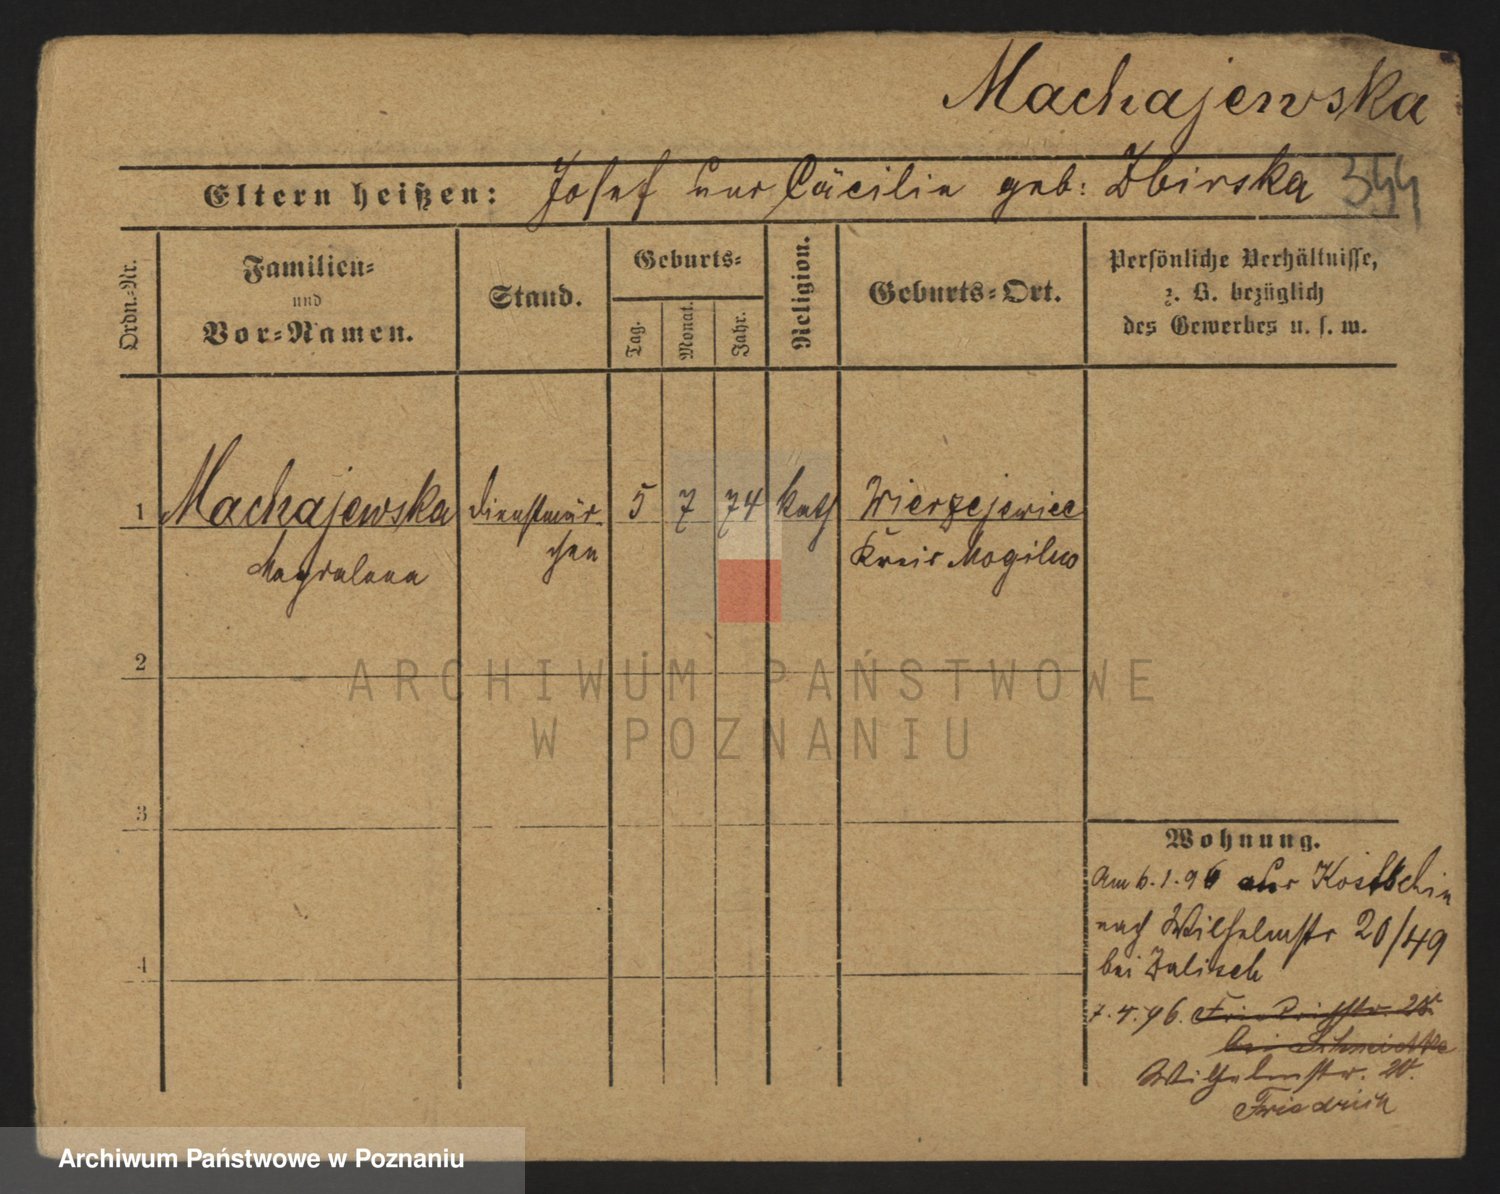 Machajewska
Eltern heißen: Josef und Cäcilie geb: Zbirska 344
Ordn.-Nr.
Familien-
und
Vor-Namen.
Stand.
Geburts-
Tag.
Monat.
Jahr.
Religion.
Geburts-Ort.
Persönliche Verhältnisse,
z. B. bezüglich
des Gewerbes u. s. w.
1 Machajewska Dienstmäd- 5 7 74 kath Wierzejewice
Magdalena chen Kreis Mogilno
2
ARCHIWUM PAŃSTWOWE
W POZNANIU
3
Wohnung.
Am 6.1.96 aus Kostschin
nach Wilhelmstr 20/49
bei Zalisch
4
7.4.96. Friedrichstr.
bei
Wilhelmstr. 20.
Friedrich
Archiwum Państwowe w Poznaniu